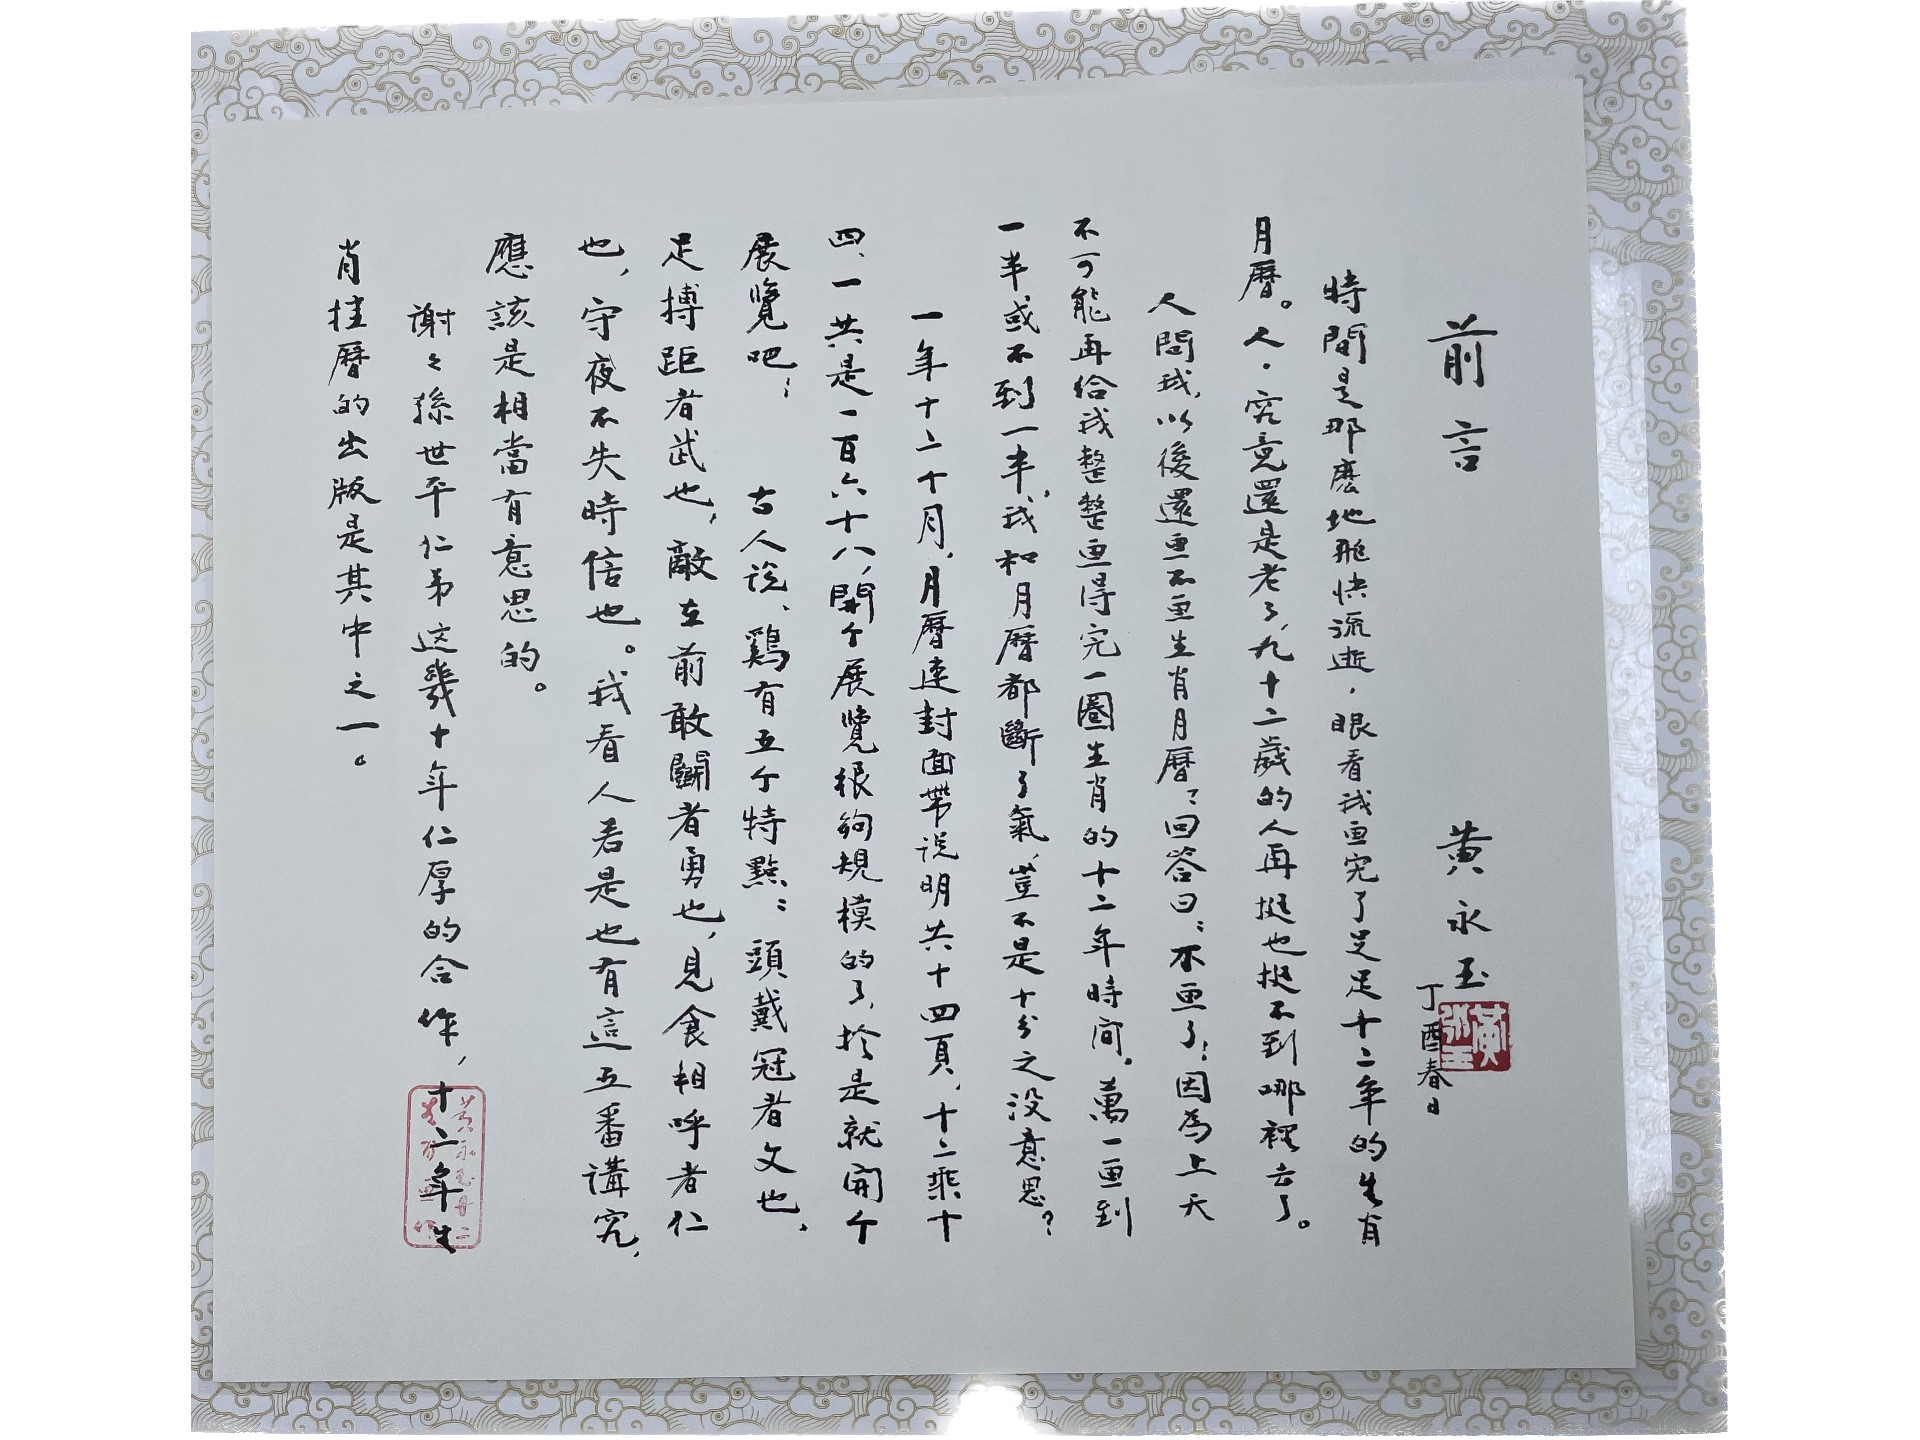 前言 黄永玉
丁酉春日
黄永玉
時間是那麽地飛快流逝，眼看我画完了足足十二年的生肖
月曆。人，究竟還是老了，九十二歲的人再挺也挺不到哪裡去了。
人問我，以後還画不画生肖月曆？回答曰：不画了；因為上天
不可能再给我整整画得完一圈生肖的十二年時间。萬一画到
一半或不到一半，我和月曆都斷了氣，豈不是十分之没意思？
一年十二个月，月曆連封面帶説明共十四頁，十二乘十
四，一共是一百六十八，開个展覽很夠規模的了，於是就開个
展覽吧！ 古人説，鷄有五个特點：頭戴冠者文也，
足搏距者武也，敵在前敢鬭者勇也，見食相呼者仁
也，守夜不失時信也。我看人若是也有這五番講究，
應該是相當有意思的。
謝々孫世平仁弟这幾十年仁厚的合作，十二年生
肖挂曆的出版是其中之一。